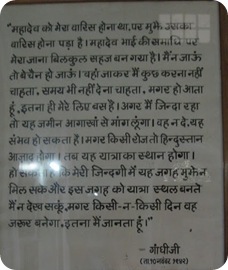 "महादेव को मेरा वारिस होना था, पर मुझे उसका
वारिस होना पड़ा है। महादेव भाई की समाधि पर
मेरा जाना बिलकुल सहज बन गया है। मैं न जाऊँ
तो बेचैन हो जाऊँ। वहाँ जाकर मैं कुछ करना नहीं
चाहता, समय भी नहीं देना चाहता, मगर हो आता
हूँ, इतना ही मेरे लिए बस है। अगर मैं जिन्दा रहा
तो यह जमीन आगाखाँ से मांग लूँगा। वह न दे, यह
संभव हो सकता है। मगर किसी रोज तो हिन्दुस्तान
आजाद होगा। तब यह यात्रा का स्थान होगा।
हो सकता है कि मेरी जिन्दगी में यह जगह मुझे न
मिल सके और इस जगह को यात्रा स्थल बनते
मैं न देख सकूँ, मगर किसी-न-किसी दिन वह
जरूर बनेगा, इतना मैं जानता हूँ।"
- गाँधीजी